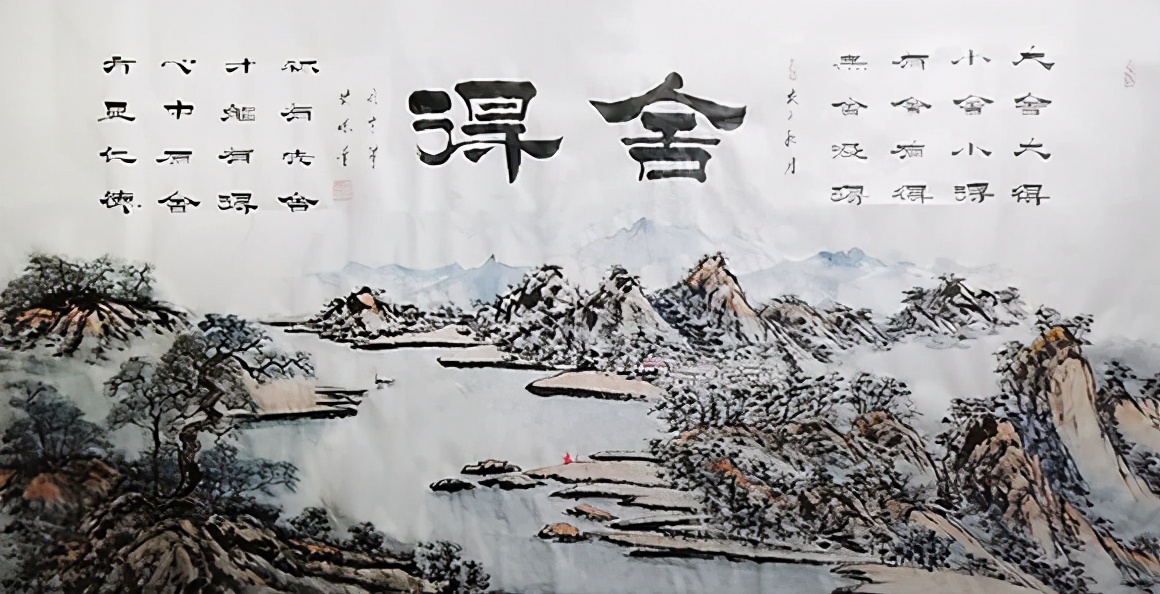 大舍大得
小舍小得
有舍有得
無舍没得
舍得
有舍
才能有得
心中有舍
方显仁德